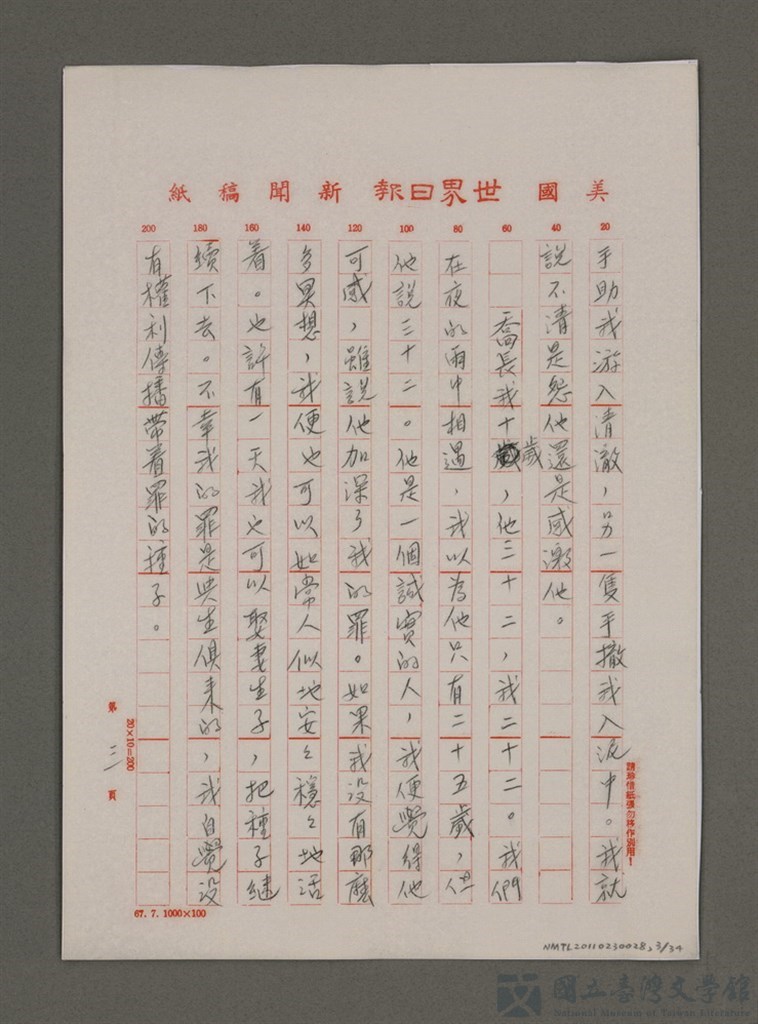 美國世界日報新聞稿紙
20
手助我游入清澈，另一隻手撤我入泥中。我就
40
說不清是怨他還是感激他。
60
喬長我十歲，他三十二，我二十二。我們
80
在夜的雨中相遇，我以為他只有二十五歲，但
100
他說三十二。他是一個誠實的人，我便覺得他
120
可感，雖説他加深了我的罪。如果我没有那麼
140
多冥想，我便也可以如常人似地安々穩々地活
160
着。也許有一天我也可以娶妻生子，把種子繼
180
續下去。不幸我的罪是與生俱来的，我自覺没
200
有權利傳播帶着罪的種子。
請珍惜紙張勿移作別用！
20×10=200
第三頁
67.7.1000×100
NMTL20110230028, 3/34
國立臺灣文學館
National Museum of Taiwan Literature